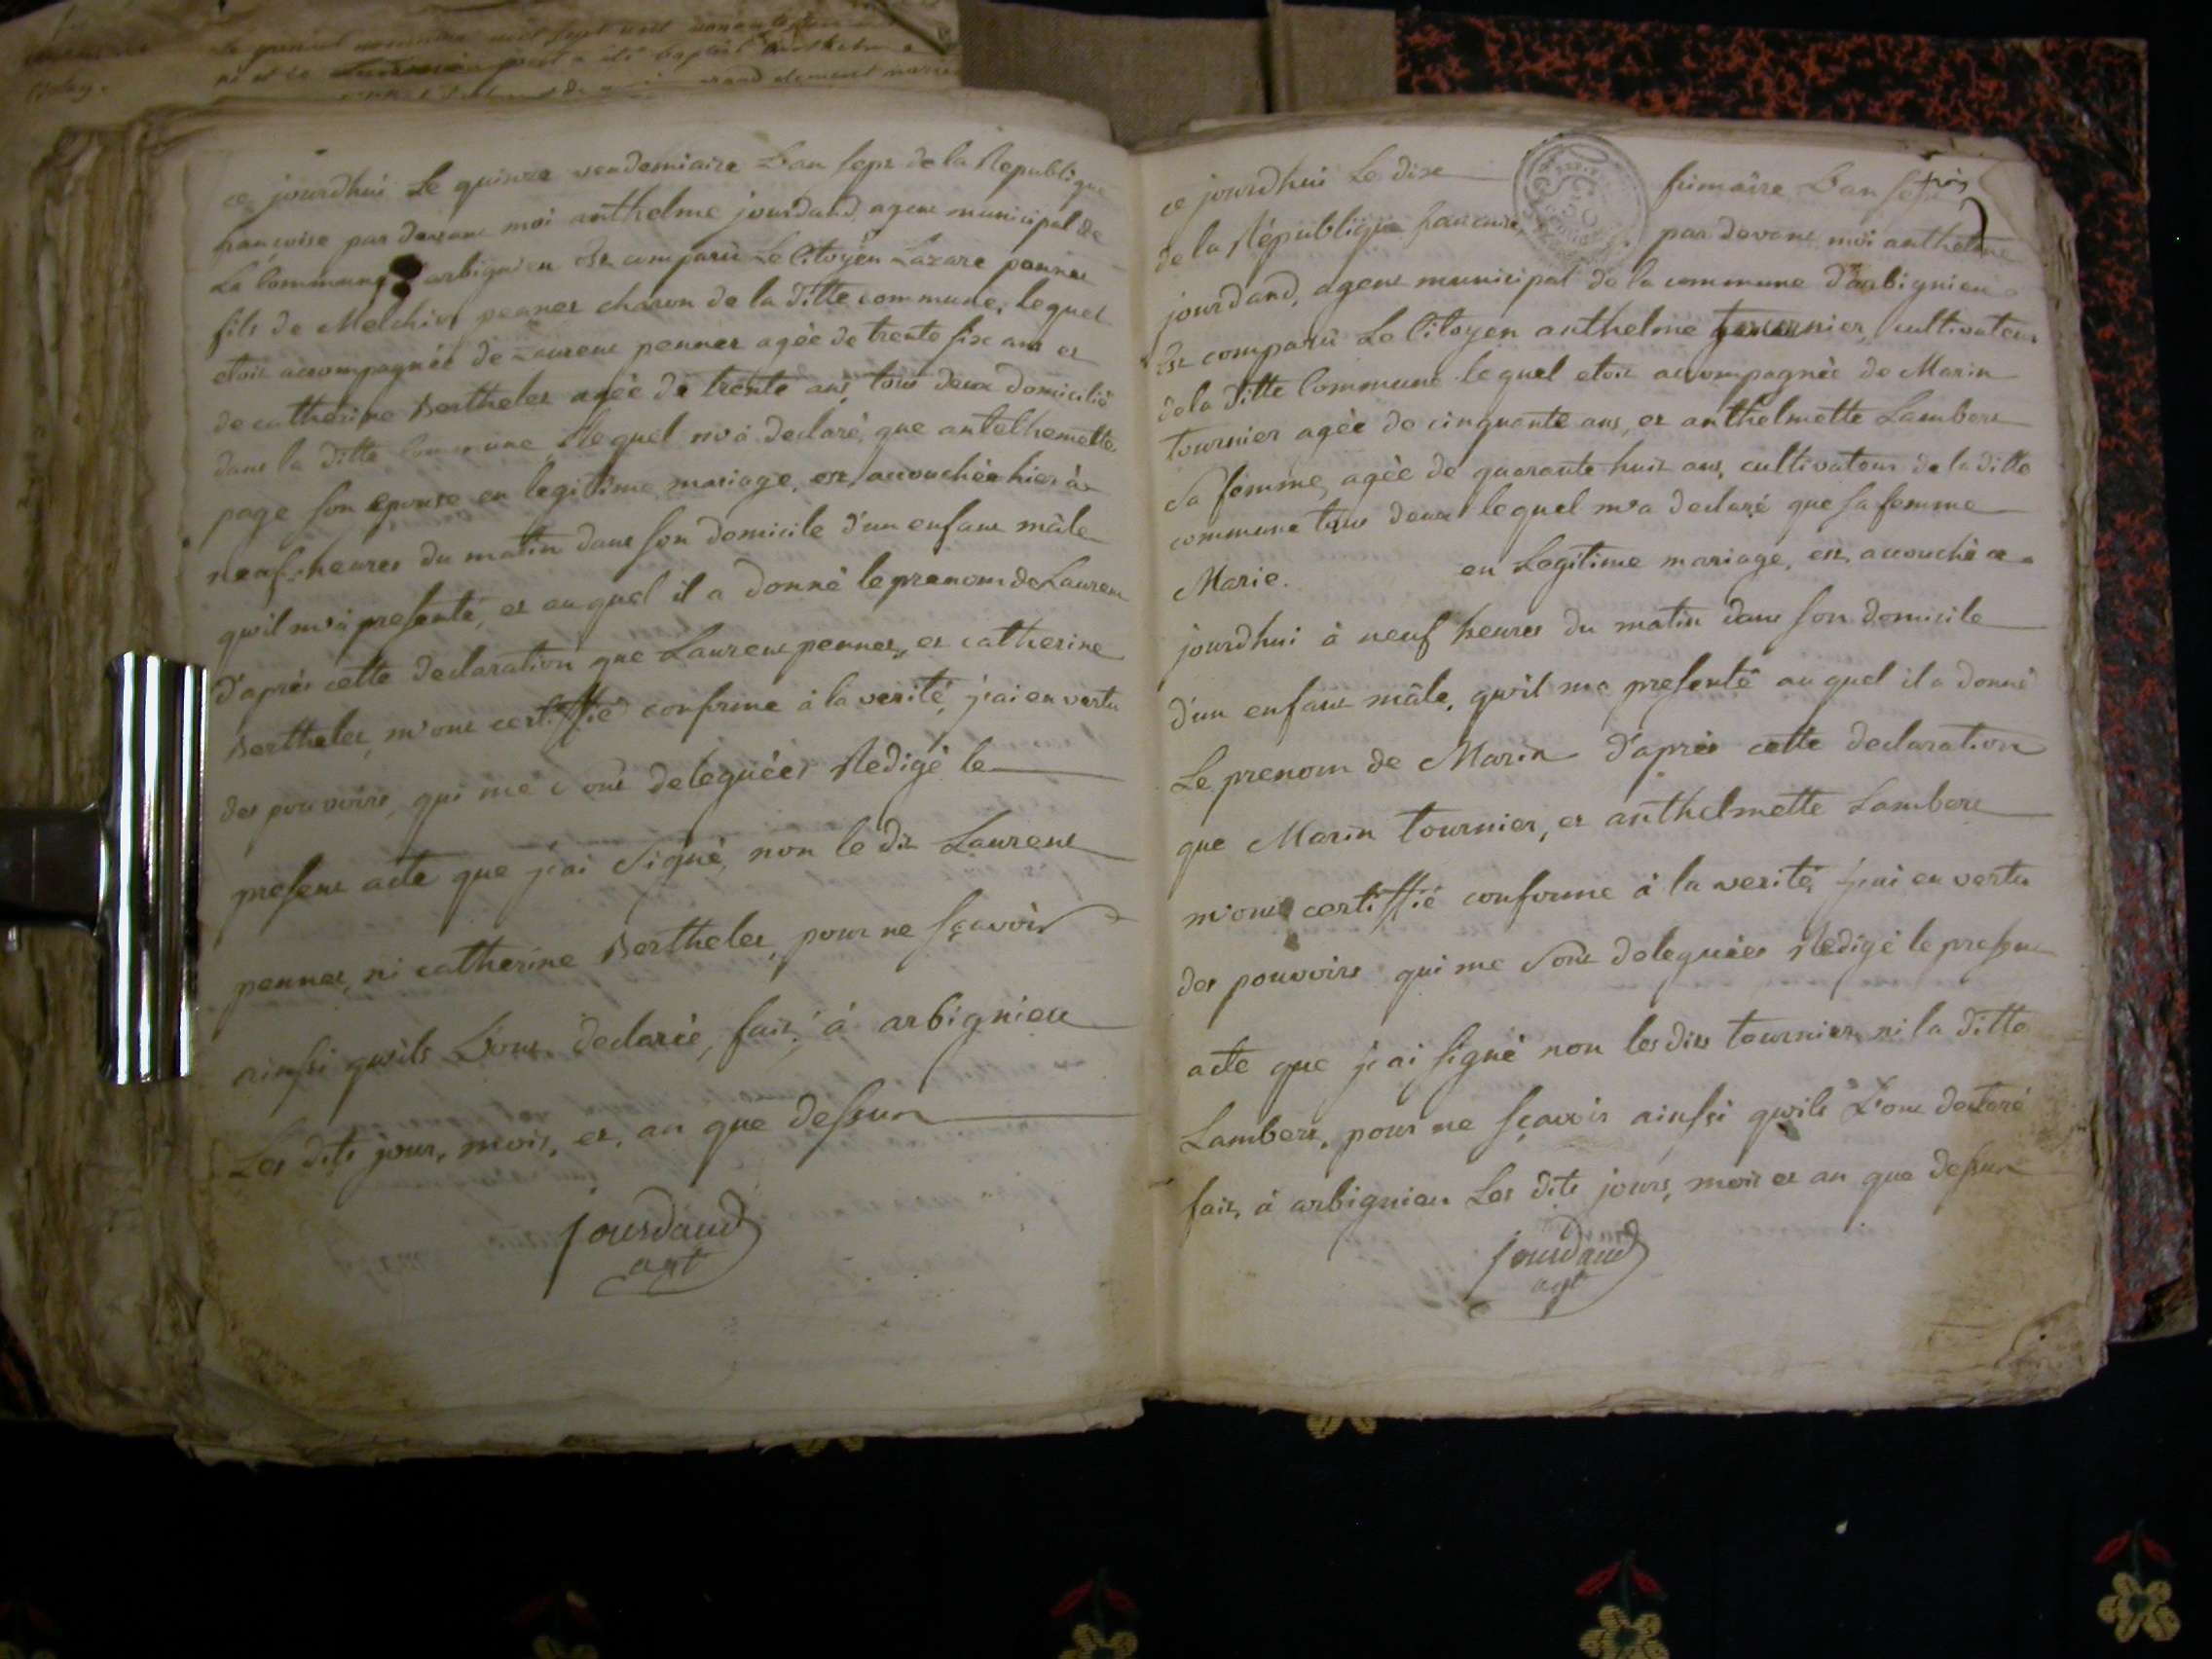 ce jourdhui Le quinze vendemiaire L'an sept de la Republique
françoise par devant moi anthelme jourdand, agent municipal de
La Commune d'arbignieu Est comparû Le Citoyen Lazare pennet
fils de Melchior pennet charon de la ditte commune, lequel
etoit accompagnée de Laurent pennet agèe de trente six ans et
de catherine Berthelet agèe de trente ans, tous deux domicilié
dans la ditte Commune, lequel m'a declaré, que antelhemette
page son epouse en legitime mariage, est accouchèe hier à
neuf heures du matin dans son domicile d'un enfant mâle
qu'il m'a presenté, et au quel il a donné le prenom de Laurent
d'après cette declaration que Laurent pennet, et catherine
Berthelet, m'ont certiffié conforme à la verité, j'ai en vertu
des pouvoirs, qui me sont deleguées Redigé le
present acte que j'ai signé, non le dit Laurent
pennet, ni catherine Berthelet, pour ne sçavoir
ainsi qu'ils L'ont declarée, fait, à arbignieu
Les dits jour, mois, et, an que dessus
jourdand
agt
ce jourdhui Le dixe frimaire L'an sept
de la République francaise, par devant moi anthelme
jourdand, agent municipal de la commune d'arbignieu
Est comparû Le Citoyen anthelme tournier, cultivateur
de la ditte Commune lequel etoit accompagnèe de Marin
tournier agèe de cinquante ans, et anthelmette Lambert
sa femme, agèe de quarante huit ans, cultivateur de la ditte
commune tous deux lequel m'a declaré que sa femme
Marie. en Legitime mariage, est, accouché ce
jourdhui à neuf heures du matin dans son domicile
d'un enfant mâle, qu'il ma presenté au quel il a donné
Le prenom de Marin d'après cette declaration
que Marin tournier, et anthelmette Lambert
m'ont certiffié conforme à la verité, j'ai en vertu
des pouvoirs qui me sont deleguées Redigé le present
acte que j'ai signé non les dits tournier, ni la ditte
Lambert, pour ne sçavoir ainsi qu'ils L'ont declaré
fait, à arbignieu Les dits jours, mois et an que dessus
jourdand
agt